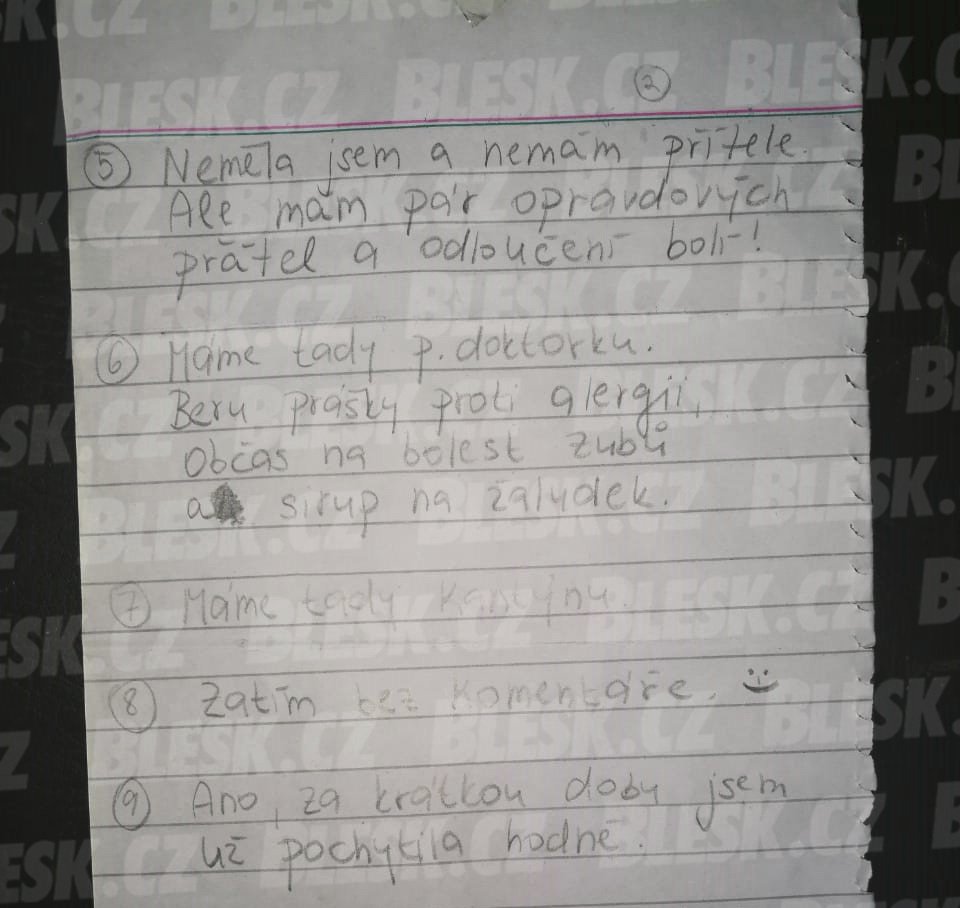 2
5 Neměla jsem a nemám přítele.
Ale mám pár opravdových
přátel a odloučení bolí!
6 Máme tady p. doktorku.
Beru prášky proti alergii,
občas na bolest zubů
a sirup na žaludek.
7 Máme tady kantýnu.
8 Zatím bez komentáře.
9 Ano, za krátkou dobu jsem
už pochytila hodně.
BLESK.CZ